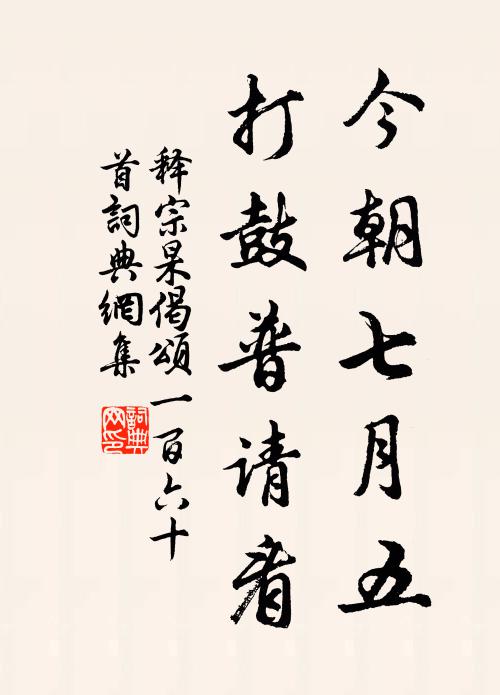 今朝七月五
打鼓普请看
释宗杲偈頌一百六十
首詞典網集
詞典
网印